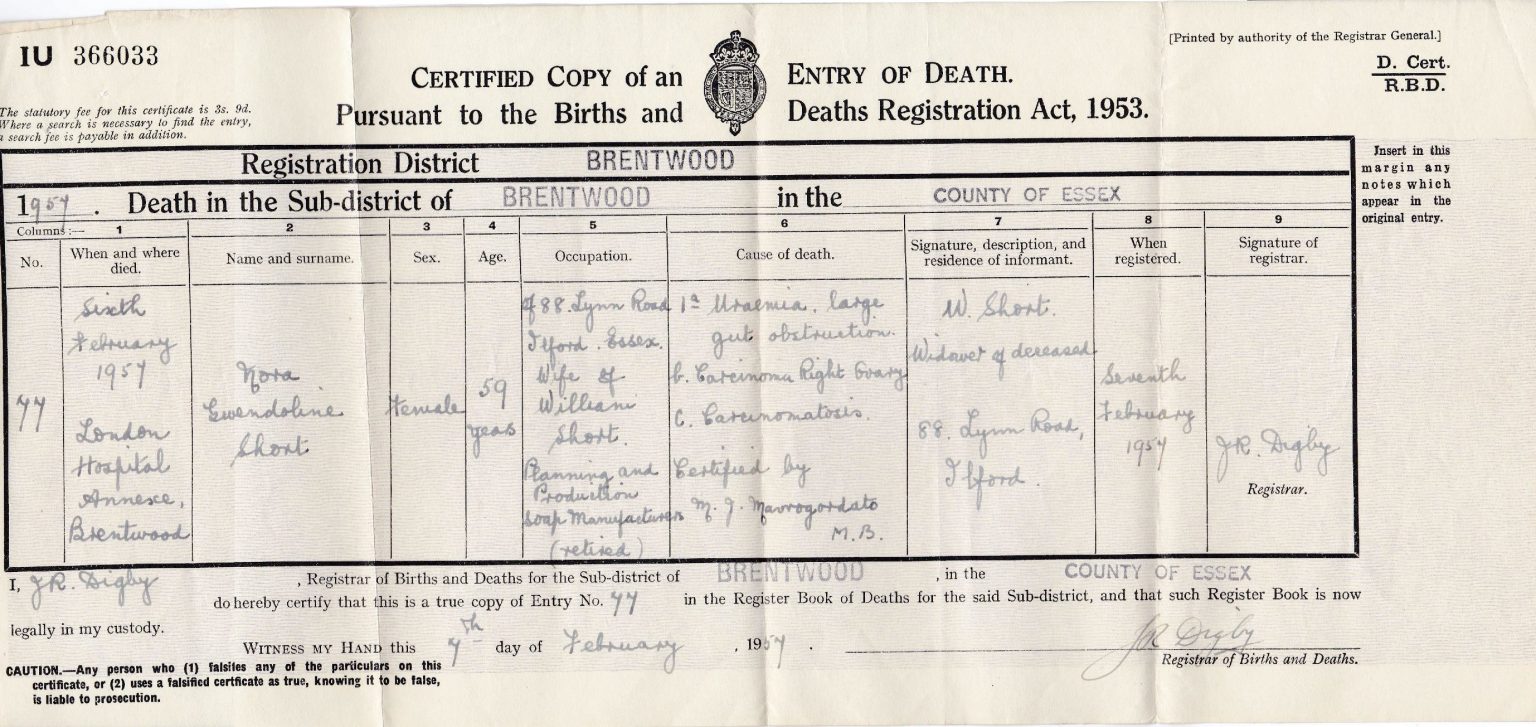 IU 366033
[Printed by authority of the Registrar General.]
D. Cert.
R.B.D.
The statutory fee for this certificate is 3s. 9d.
Where a search is necessary to find the entry,
a search fee is payable in addition.
CERTIFIED COPY of an ENTRY OF DEATH.
Pursuant to the Births and Deaths Registration Act, 1953.
Registration District BRENTWOOD
1957. Death in the Sub-district of BRENTWOOD in the COUNTY OF ESSEX
Insert in this
margin any
notes which
appear in the
original entry.
Columns:— 1 2 3 4 5 6 7 8 9
No.
When and where
died.
Name and surname.
Sex.
Age.
Occupation.
Cause of death.
Signature, description, and
residence of informant.
When
registered.
Signature of
registrar.
77
Sixth
February
1957
London
Hospital
Annexe,
Brentwood
Nora
Gwendoline
Short
Female
59
years
of 88. Lynn Road
Ilford. Essex.
Wife of
William
Short.
Planning and
Production
Soap Manufacturers
(retired)
1a Uraemia. large
gut obstruction.
b. Carcinoma Right Ovary
C. Carcinomatosis.
Certified by
M. J. Mavrogordato
M.B.
W. Short.
Widower of deceased
88. Lynn Road,
Ilford.
Seventh
February
1957
JR. Digby
Registrar.
I, JR. Digby, Registrar of Births and Deaths for the Sub-district of BRENTWOOD, in the COUNTY OF ESSEX
do hereby certify that this is a true copy of Entry No. 77 in the Register Book of Deaths for the said Sub-district, and that such Register Book is now
legally in my custody.
WITNESS MY HAND this 7th day of February, 1957.
JR Digby
Registrar of Births and Deaths.
CAUTION.—Any person who (1) falsifies any of the particulars on this
certificate, or (2) uses a falsified certficate as true, knowing it to be false,
is liable to prosecution.